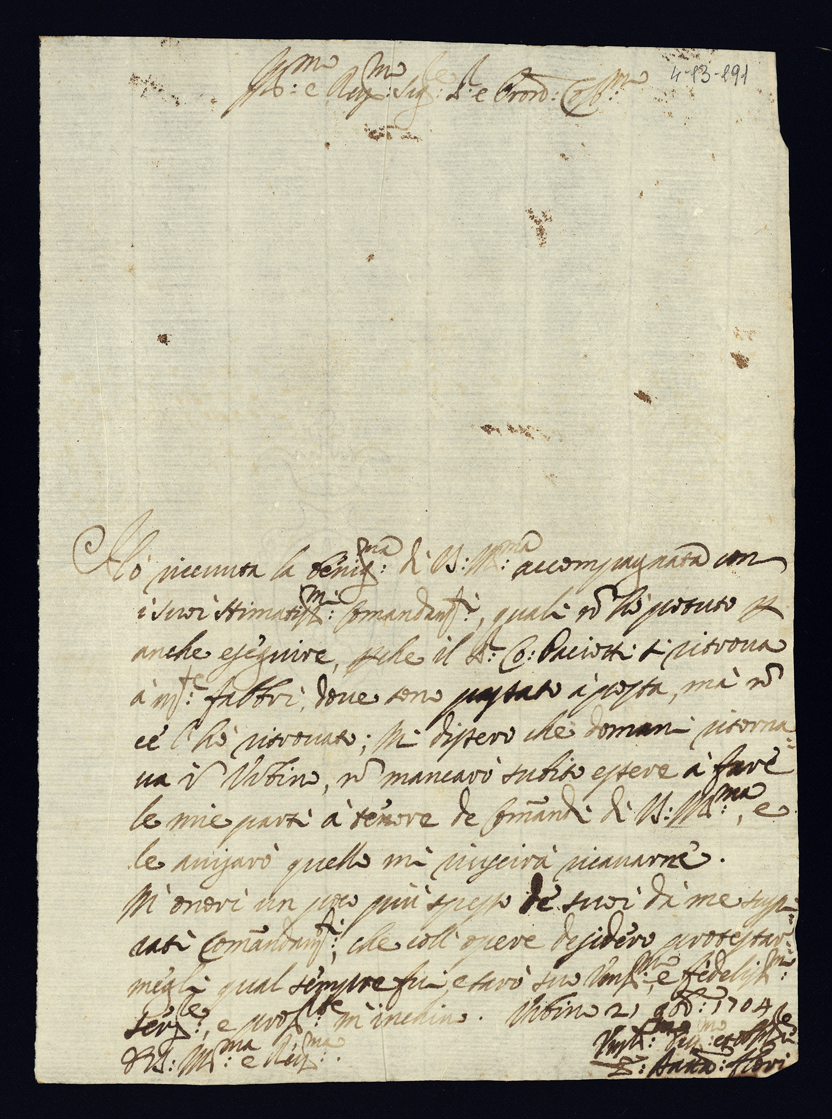 4-13-191
Ill.mo e Rev.mo Sig.re S.r e Pron: Col.mo
Hò riceuuta la benig.ma di V: S: Ill.ma accompagnata con
i suoi stimatiss.mi Comandam.ti, quali nõ hò potuto p
anche eseguire, pche il S.r Co: Paciotti si ritroua
à m.te fabbri, doue sono portato à posta, mà nõ
ce l'hò ritrouato; Mi dissero che domani ritorna=
ua in Vrbino, nõ mancarò subito essere à fare
le mie parti à tenore de Comãdi di V: S: Ill.ma, e
le auisarò quello mi riuscirà ricauarne.
Mi onori un poco più spesso de suoi da me sospi=
rati Comandam.ti, che coll'opere desidero protestar=
megli qual sempre fui, e sarò suo Vm.mo, e fedeliss.mo
Ser.re, e prof.te m'inchino. Vrbino 21 1704
Di V: S: Ill.ma e Rev.ma
fiori